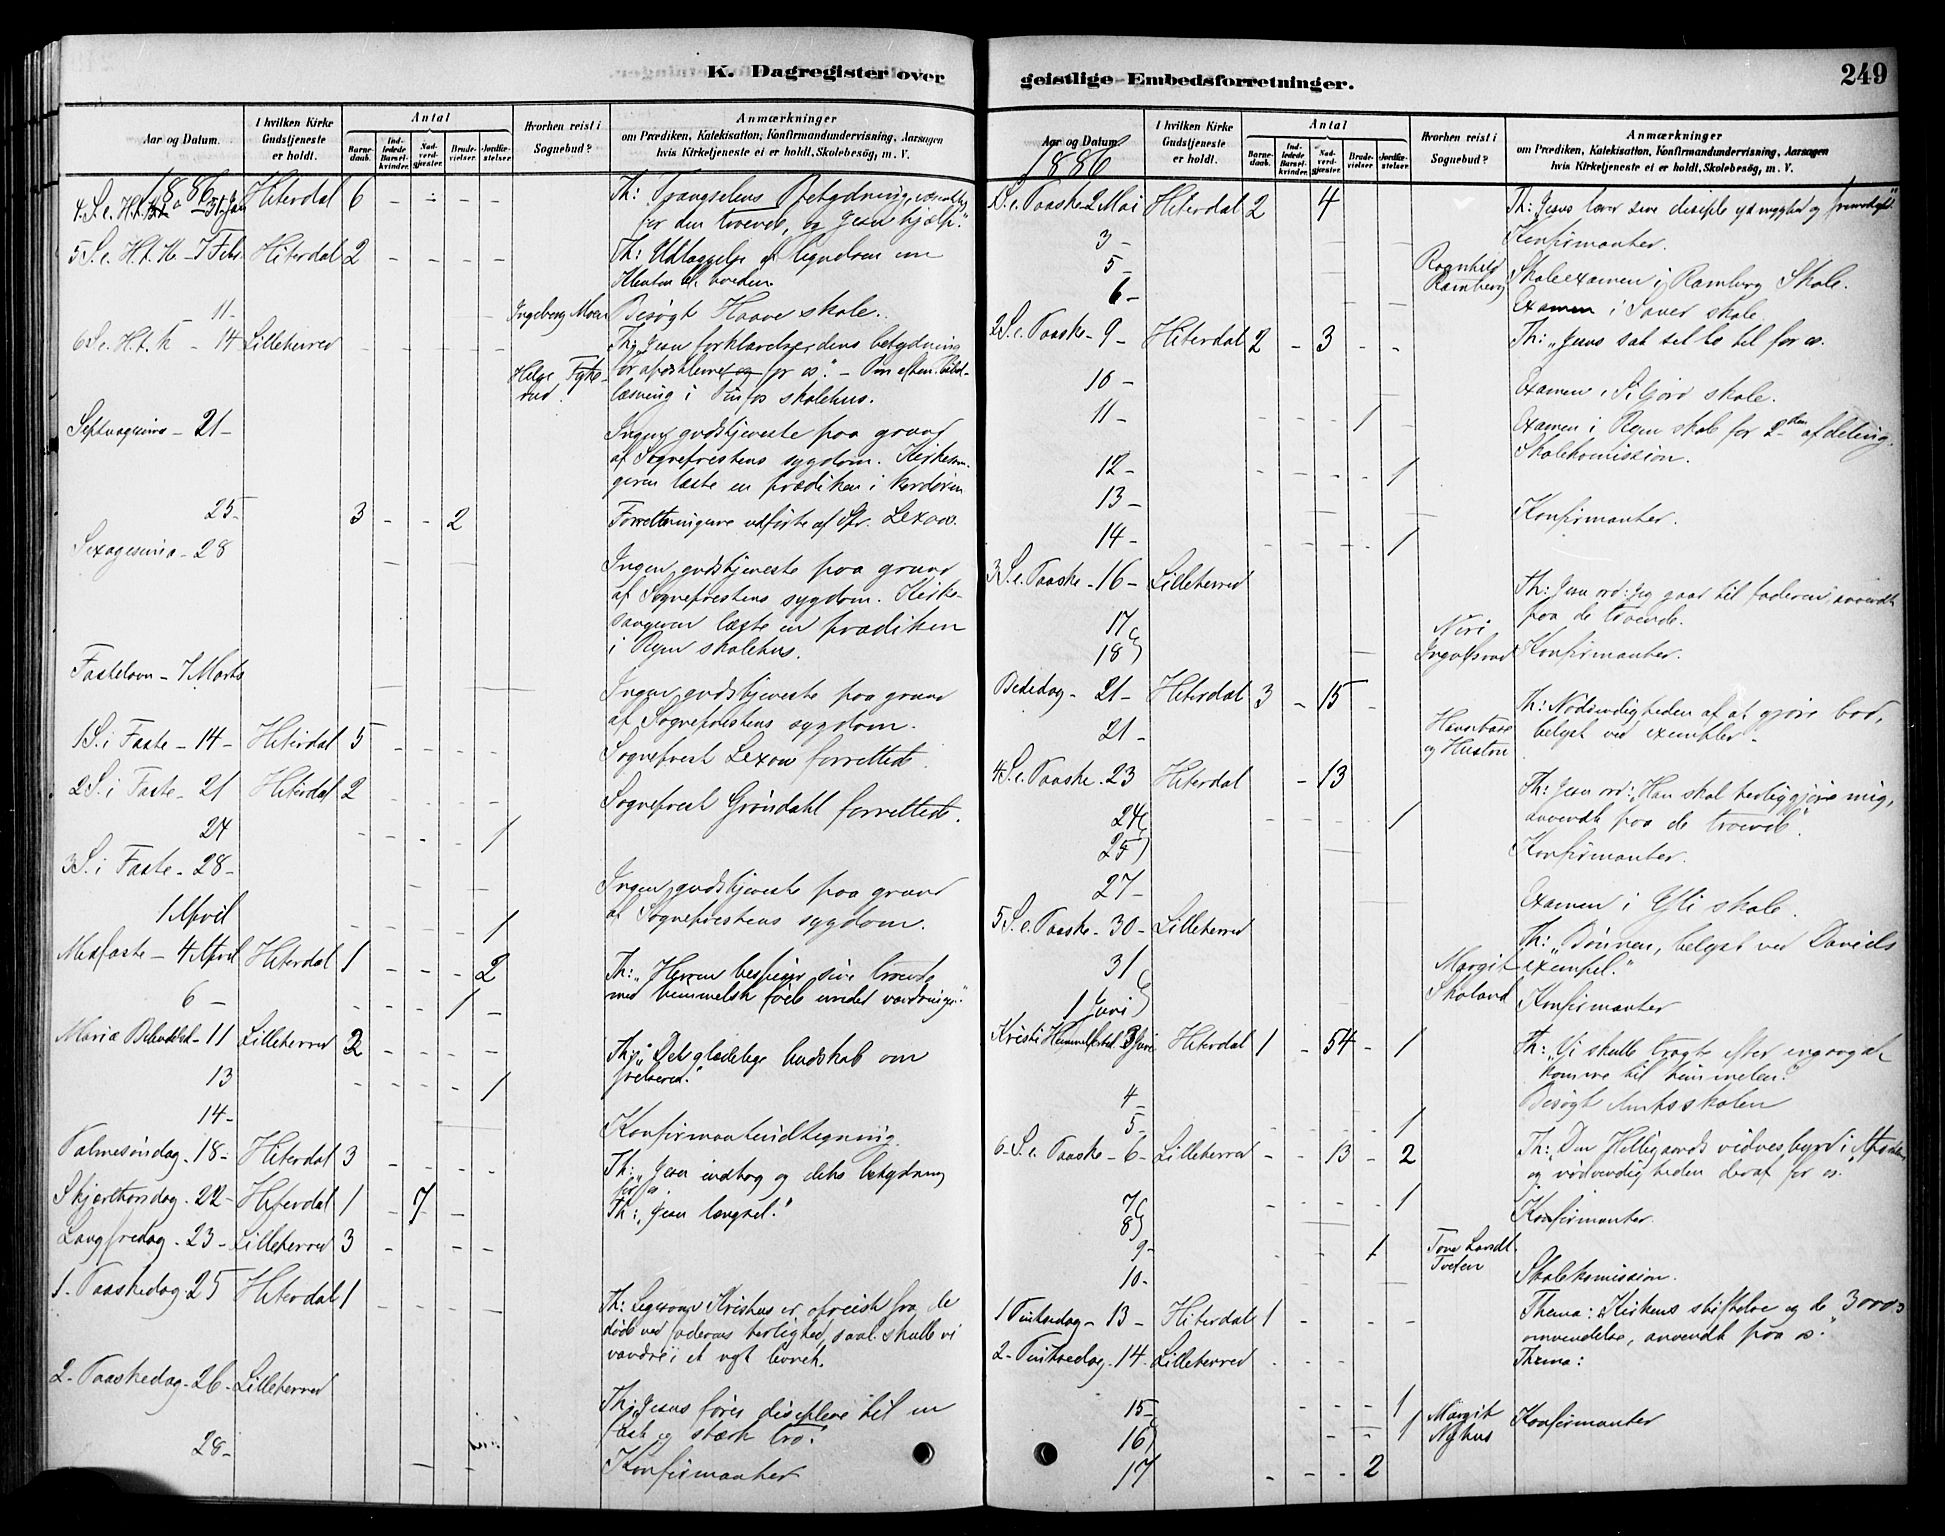 K. Dagregister over
Aar og Datum.
I hvilken Kirke Gudstjeneste er holdt.
Antal
Barnedaab.
Indledede Barselkvinder.
Nadverdgjæster.
Brudevielser.
Jordfæstelser.
Hvorhen reist i Sognebud?
Anmærkninger
om Prædiken, Katekisation, Konfirmandundervisning, Aarsagen
hvis Kirketjeneste ei er holdt, Skolebesøg, m. V.
1886
4. S. e. H. t. K. 31 Jan Hiterdal 6 - - - - Th: Trængselens Betydning
for den troende, og Jesu hjælp."
5 S. e. H. t. K. - 7 Feb. Hiterdal 2 - - - - Th: Udlæggelse af lignelsen om
Klinten bl. hveden.
11- Ingeborg Moen Besøgt Haave skole.
6 S. e. H. t. K - 14 Lilleherred - - - - - Th: Jesu forklarelse, dens betydning
Helge for apostlerne og for os." - Om eftm. Bibel-
læsning i Tinfos skolehus.
Septuagesima - 21 - Ingen gudstjeneste paa grund
af Sogneprestens sygdom. Kirkesan-
geren læste en prædiken i
25- 3 - - 2 Forretningerne udførte af Spr. Lexow.
Sexagesima - 28 Ingen gudstjeneste paa grund
af Sogneprestens sygdom. Kirke-
sangeren læste en prædiken
i Ryen skolehus.
Fastelavn - 7 Marts Ingen gudstjeneste paa grund
af Sogneprestens sygdom.
1 S. i Faste - 14 - Hiterdal 5 - - - - Sogneprest Lexow forrettede.
2 S. i Faste - 21 Hiterdal 2 - - - - Sogneprest Grøndahl forrettede.
24 - - - - 1
3 S. i Faste - 28 - Ingen gudstjeneste paa grund
af Sogneprestens sygdom.
1 April - - - - 1
Midfaste - 4 April Hiterdal 1 - - - 2 Th: "Herren bespiser sine troende
med himmelsk føde under vandringen."
6 - - - - 1 -
Mariæ Bebudelsesd - 11 Lilleherred 2 - - - - Th: "Det glædelige budskab om
frelseren."
13 - - - - 1
14 - Konfirmantindtegning.
Palmesøndag - 18 - Hiterdal 3 - - - - Th: "Jesu indtog og dets betydning
for os.
Skjærthorsdag - 22 - Hiterdal 1 - 7 - Th: "Jesu længsel."
Langfredag - 23 - Lilleherred 3 - - - -
1. Paaskedag 25 Hiterdal 1 - - - - Th: Ligesom Kristus er opreist fra de
døde ved faderens herlighed, saal. skulle vi
vandre i et nyt levnet.
2. Paaskedag - 26 - Lilleherred Th: Jesus fører disciplene til en
fast og stærk tro."
28 - Konfirmanter
geistlige Embedsforretninger.
249
Aar og Datum.
I hvilken Kirke Gudstjeneste er holdt.
Antal
Barnedaab.
Indledede Barselkvinder.
Nadverdgjæster.
Brudevielser.
Jordfæstelser.
Hvorhen reist i Sognebud?
Anmærkninger
om Prædiken, Katekisation, Konfirmandundervisning, Aarsagen
hvis Kirketjeneste ei er holdt, Skolebesøg, m. V.
1886
1 S. e. Paaske 2 Mai Hiterdal 2 4 Th: Jesus lærer sine disciple ydmyghed og
3 - Konfirmanter.
5 - Ragnhild Ramberg Skoleexamen i Ramberg Skole.
6 - Examen i Sauer skole.
2 S. e. Paaske - 9 - Hiterdal 2 - 3 - - Th: "Jesus
10 - Examen i Siljord skole.
11 - 1 Examen i Ryen skole for 2den afdeling.
Skolekomission.
12 - - - - - 1
13 - Konfirmanter.
14 - - - - - 1
3 S. e. Paaske - 16 - Lilleherred Th: Jesu ord: Jeg gaar til faderen, anvendt
paa de troende.
17
18 Ingolfsrud Konfirmanter.
Bededag - 21 - Hiterdal 3 - 15 - Th: Nødvendigheden af at gjøre bod,
belyst ved exempler.
21 - og Hustru
4 S. e. Paaske - 23 Hiterdal - 13 Th: Jesu ord: "Han skal herliggjøre mig,
anvendt paa de troende."
24 - - - - 1
25 Konfirmanter.
27 - Examen i Yli skole.
5 S. e. Paaske - 30 - Lilleherred Th: "Bønnen, belyst ved Davids
exempel."
31 Margit Skoland
1 Juni Konfirmanter
Kristi Himmelfartsd 3 Juni Hiterdal 1 - 54 - 1 Th: "Vi skulle tragte efter engang at
komme til himmelen."
4 - Besøgt Amtsskolen
5 - 1
6 - S. e. Paaske - 6 - Lilleherred - - 13 - 2 Th: Den Helligaands vidnesbyrd i
og nødvendigheden deraf for os.
7 - - - - 1
8 Konfirmanter.
9 - 1 Tone Tveten
10 - Skolekomission.
1 Pintsedag - 13 - Hiterdal 1 - - - - Thema: Kirkens stiftelse og de 3000s
omvendelse, anvendt paa os."
2 - Pintsedag - 14 - Lilleherred - - - Thema:
15 - - - - - 1
16 - - 1 Margit Nyhus Konfirmanter
17 - - - 2